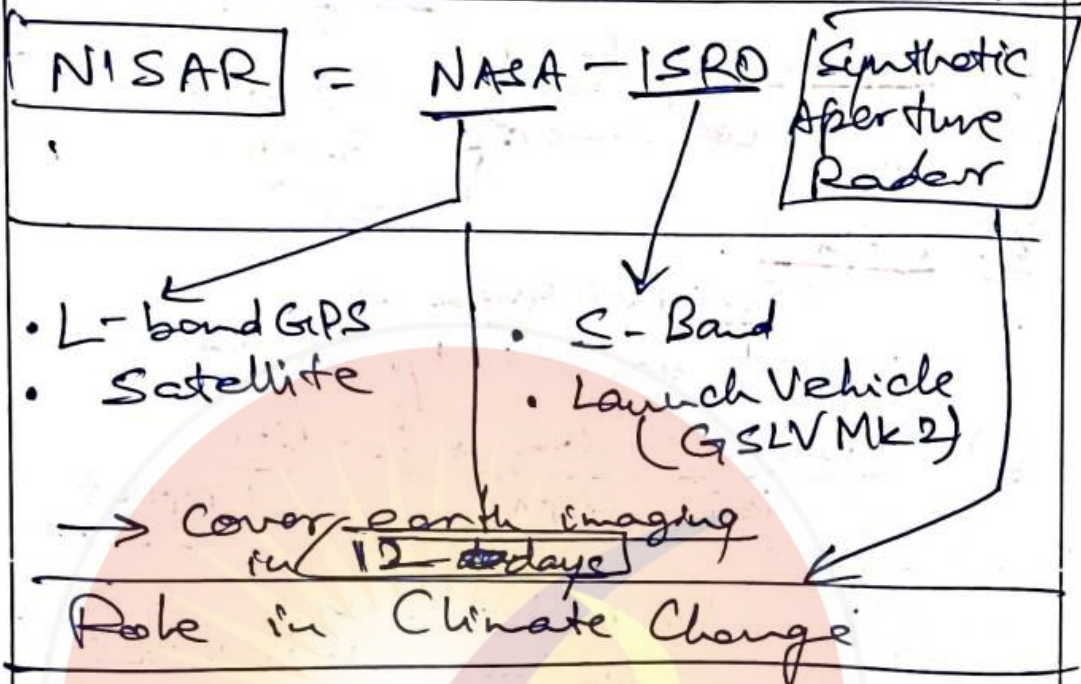 NISAR = NASA - ISRO Synthetic
Aperture
Radar
• L-band GPS
• Satellite
• S-Band
• Launch Vehicle
(GSLV Mk2)
→ Cover earth imaging
in 12-days
Role in Climate Change